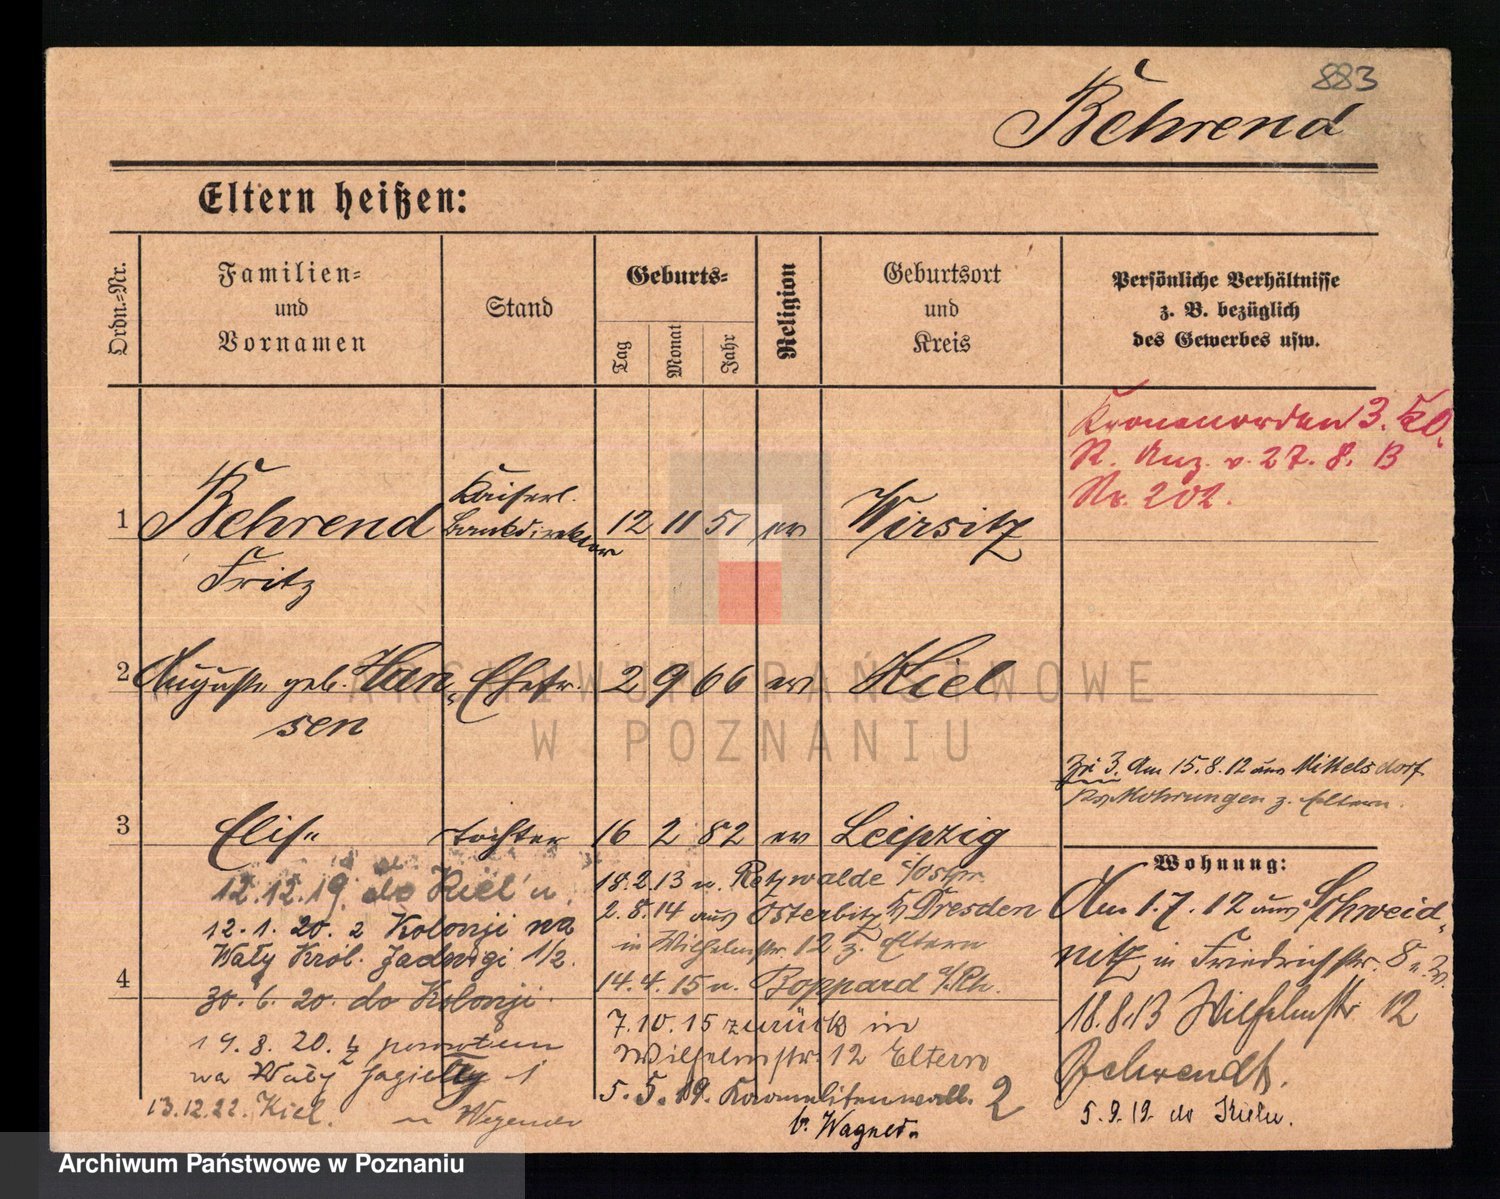 883
Behrend
Eltern heißen:
Ordn.=Nr.
Familien=
und
Vornamen
Stand
Geburts=
Tag
Monat
Jahr
Religion
Geburtsort
und
Kreis
Persönliche Verhältnisse
z. B. bezüglich
des Gewerbes usw.
Kronenorden 3. Kl.
R. Anz. v. 27. 8. 13
Nr. 202.
1 Behrend Kaiserl. Bankdirektor 12 11 51 ev Wirsitz
Fritz
2 Auguste geb. Han= Ehefr. 2 9 66 ev Kiel
sen
Zu 3. Am 15.8.12 aus Mittelsdorf
Kr. Mohrungen z. Eltern.
3 Elis. Tochter 16 2 82 ev Leipzig
Wohnung:
12.12.19. do Kiel
12. 1. 20. z Kolonji na
Wały Król. Jadwigi 1/2.
4
30. 6. 20. do Kolonji.
19. 8. 20. z powrotem
na Wały Jagiełły 1
13.12.22. Kiel. Wegener
18.2.13 n. Retzwalde
2. 8. 14 aus Dresden
in Wilhelmstr. 12 z. Eltern
14. 4. 15 n. Boppard a/Rh.
7. 10. 15 zurück in
Wilhelmstr. 12 Eltern
5. 5. 19. Karmelitenwall. 2
b. Wagner.
Am 1. 7. 12 aus Schweid=
nitz in Friedrichstr. 8
18.8.13 Wilhelmstr 12
Behrendt.
5. 9. 19 do
ARCHIWUM PAŃSTWOWE
W POZNANIU
Archiwum Państwowe w Poznaniu